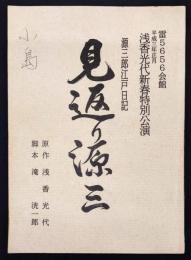 雷5656会館
平成二年正月
浅香光代新春特別公演
源三郎江戸日記
見返り源三
原作 浅香光代
脚本 滝洸一郎
小島